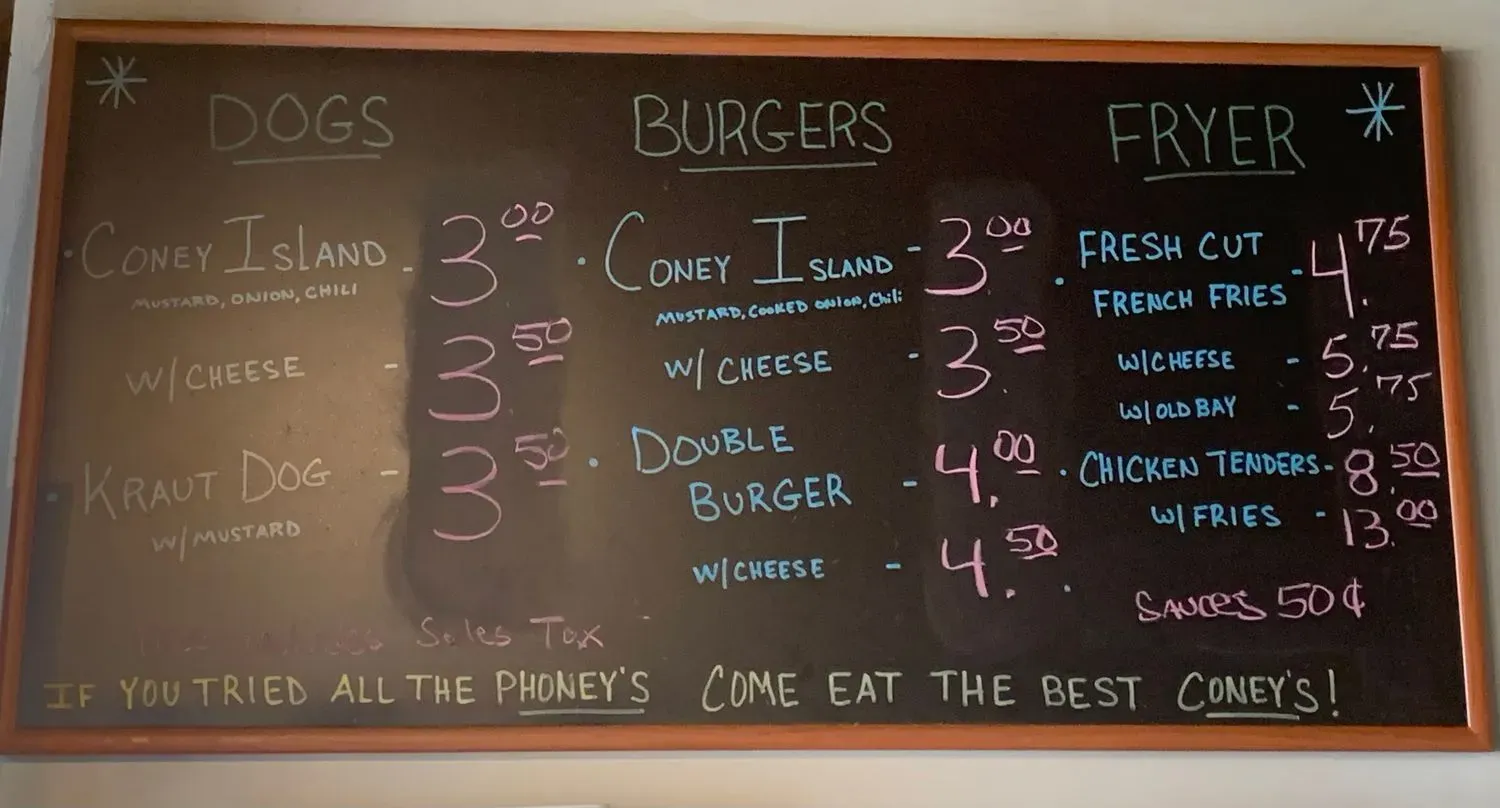 DOGS
· CONEY ISLAND - 3.00
MUSTARD, ONION, CHILI
W/ CHEESE - 3.50
· KRAUT DOG - 3.50
W/ MUSTARD
BURGERS
· CONEY ISLAND - 3.00
MUSTARD, COOKED ONION, Chili
W/ CHEESE - 3.50
· DOUBLE
BURGER - 4.00
W/CHEESE - 4.50
FRYER
· FRESH CUT
FRENCH FRIES - 4.75
W/CHEESE - 5.75
W/OLD BAY - 5.75
· CHICKEN TENDERS - 8.50
W/FRIES - 13.00
· SAUCES 50¢
Sales Tax
IF YOU TRIED ALL THE PHONEY'S COME EAT THE BEST CONEY'S!